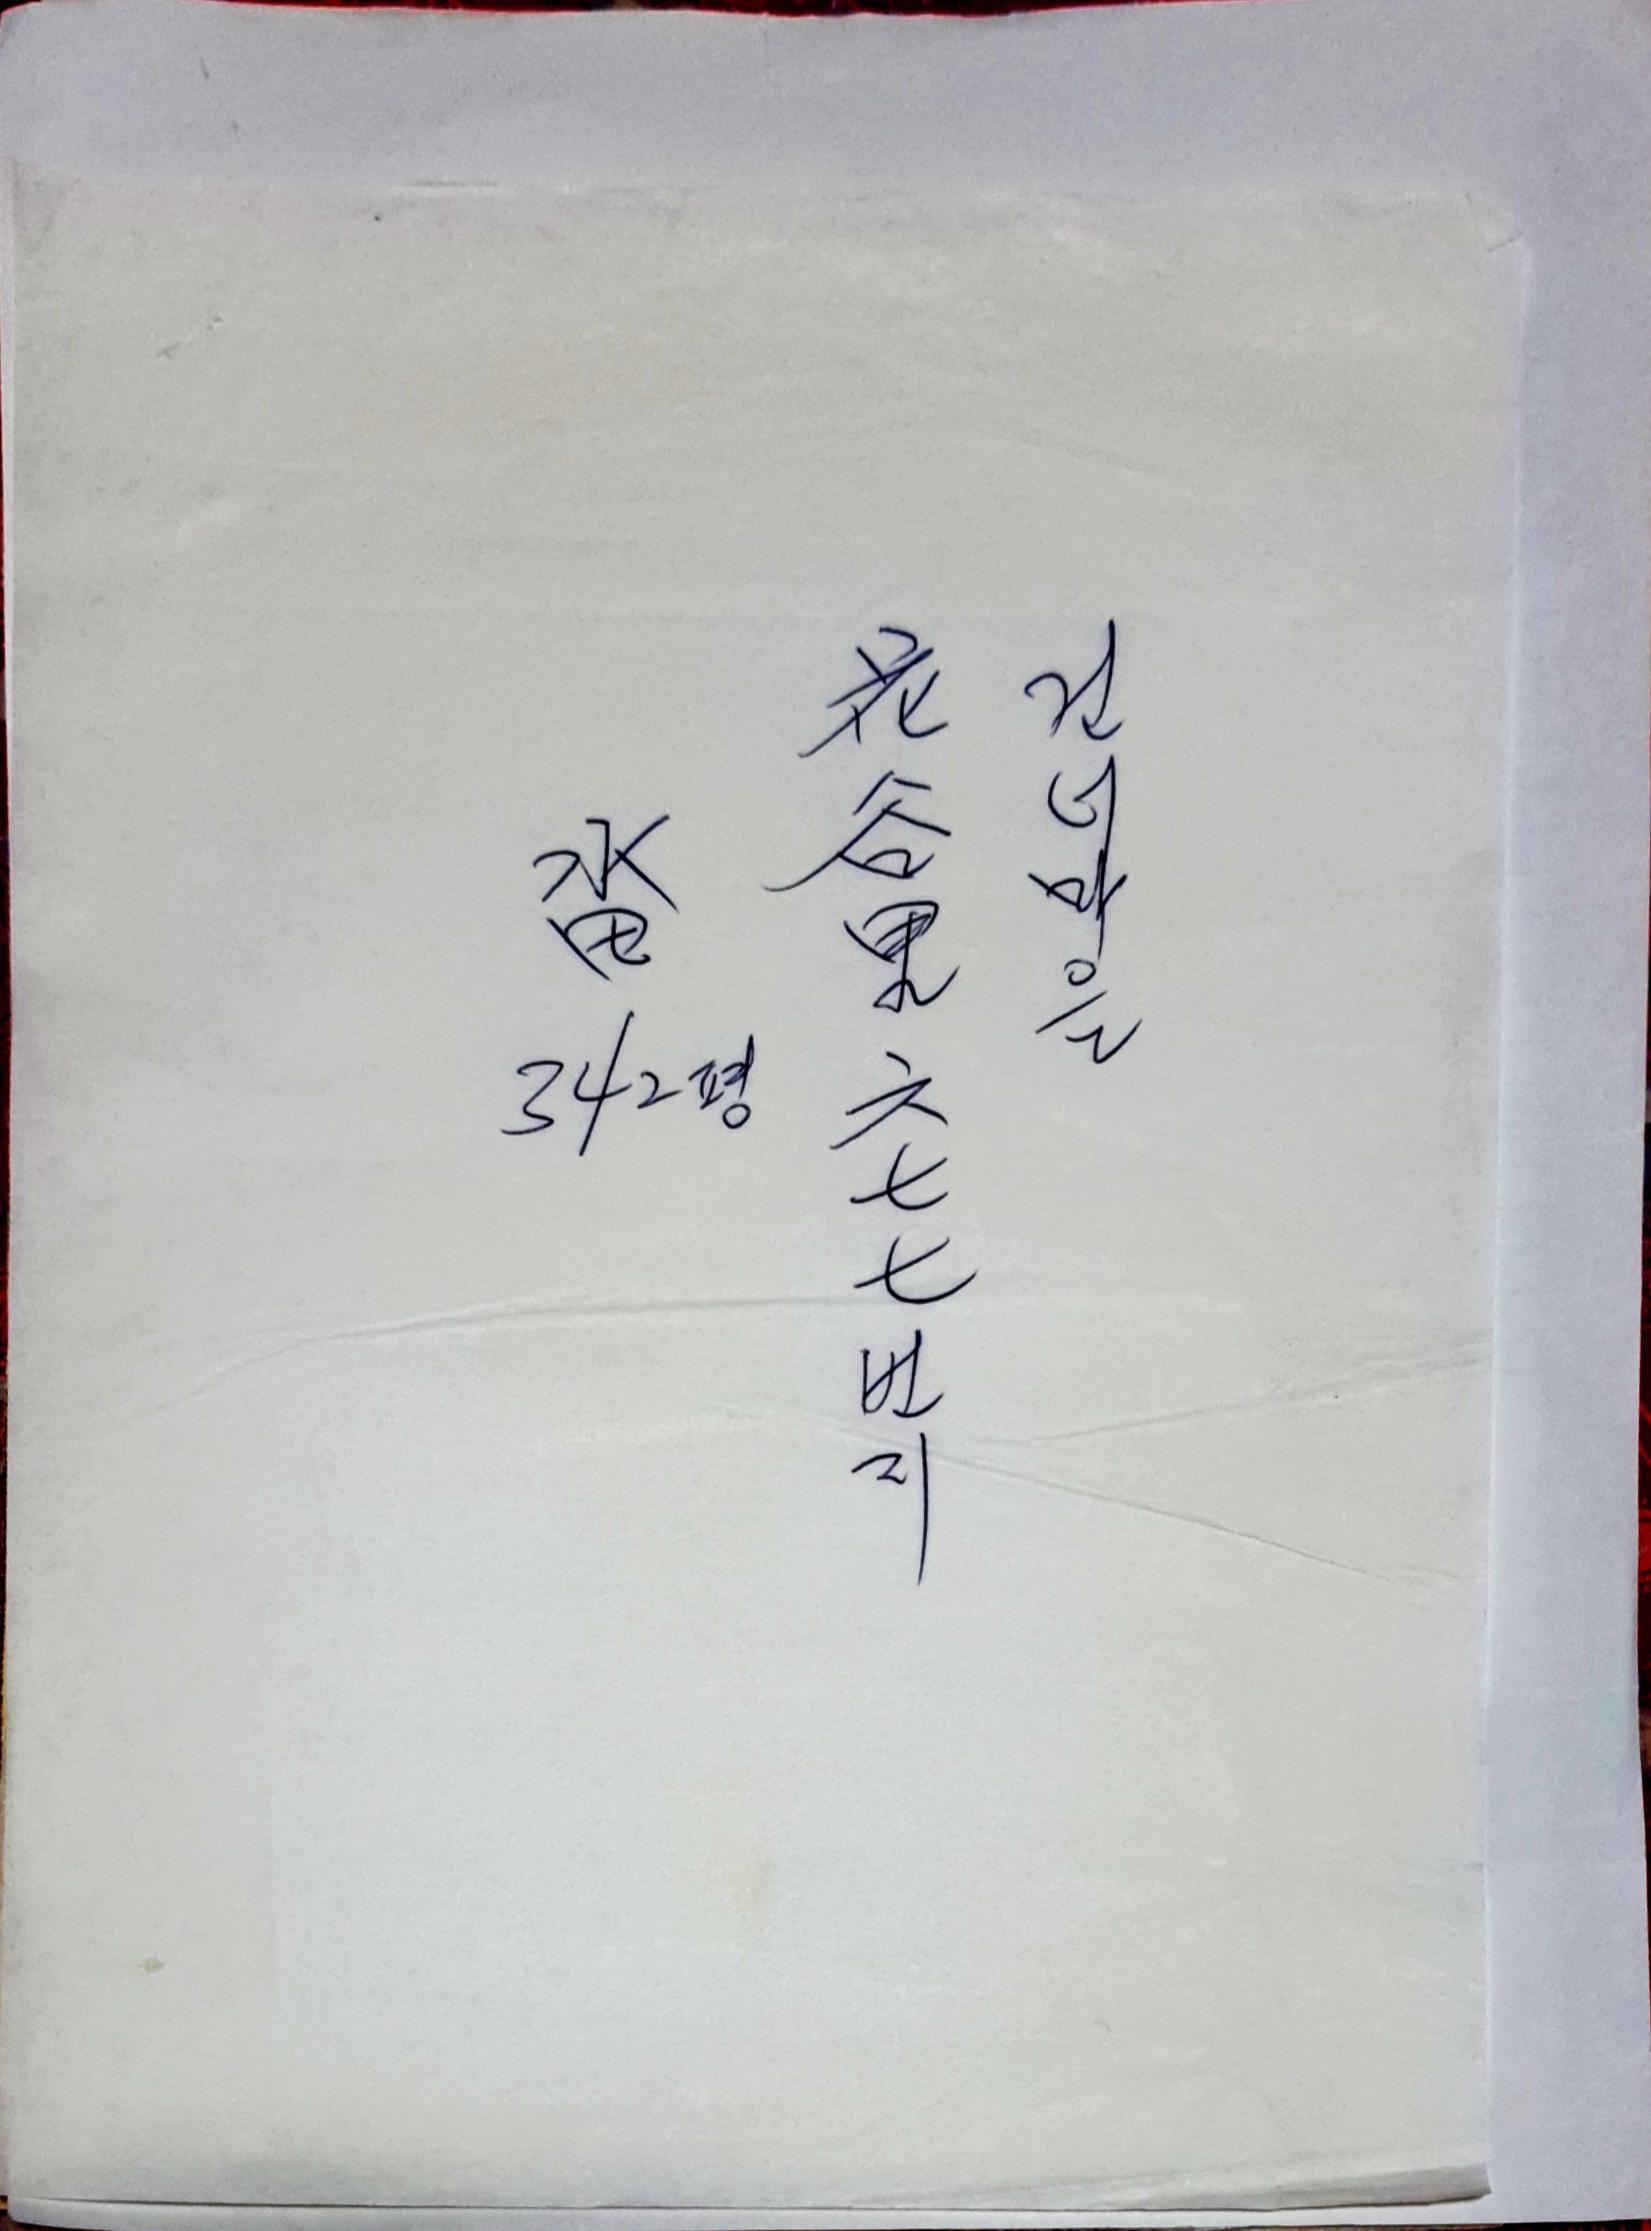 건너마을
花谷里 六七七번지
畓
342평